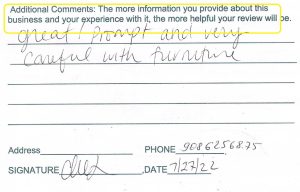 Additional Comments: The more information you provide about this
business and your experience with it, the more helpful your review will be.
great! Prompt and very
careful with furniture
Address PHONE 9086256875
SIGNATURE DATE 7/27/22